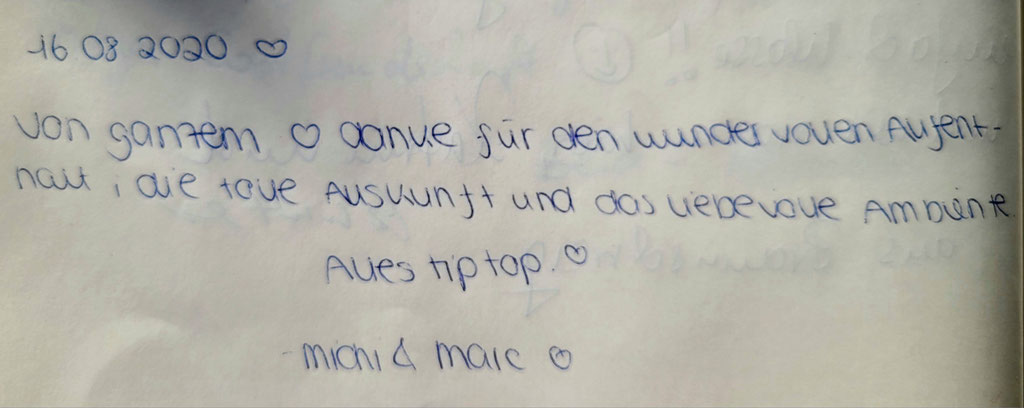 16 08 2020 ♡
Von ganzem ♡ danke für den wundervollen Aufent-
halt, die tolle Auskunft und das liebevolle Ambiente.
Alles tip top. ♡
- Michi & Marc ♡